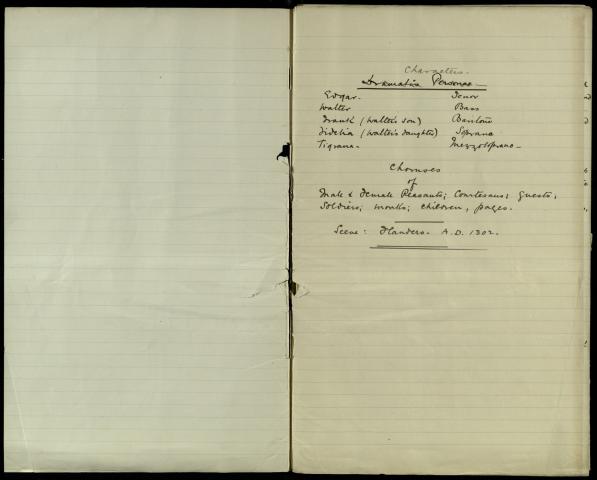 Characters.
Dramatis Personae—
Edgar. Tenor
Walter Bass
Frank (Walter's son) Baritone
Fidelia (Walter's daughter) Soprano
Tigrana. Mezzosoprano.
Choruses
of
Male & Female Peasants; Courtesans; guests;
Soldiers; monks; children, pages.
Scene: Flanders. A.D. 1302.